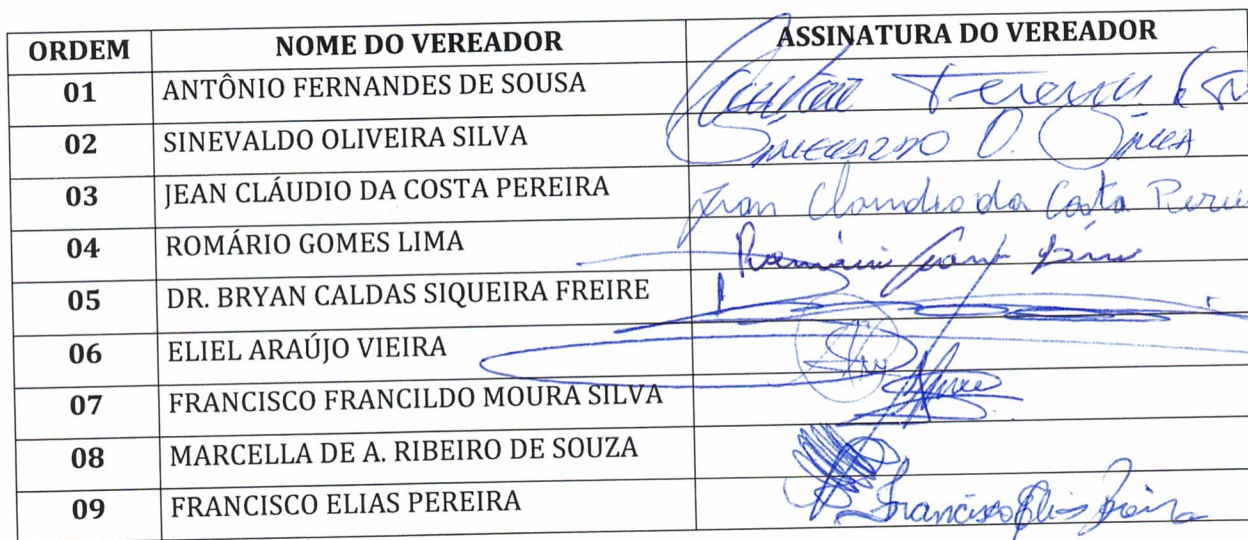 ORDEM NOME DO VEREADOR ASSINATURA DO VEREADOR
01 ANTÔNIO FERNANDES DE SOUSA
02 SINEVALDO OLIVEIRA SILVA O.
03 JEAN CLÁUDIO DA COSTA PEREIRA Jean Claudio da Costa
04 ROMÁRIO GOMES LIMA
05 DR. BRYAN CALDAS SIQUEIRA FREIRE
06 ELIEL ARAÚJO VIEIRA
07 FRANCISCO FRANCILDO MOURA SILVA
08 MARCELLA DE A. RIBEIRO DE SOUZA
09 FRANCISCO ELIAS PEREIRA Francisco Elias